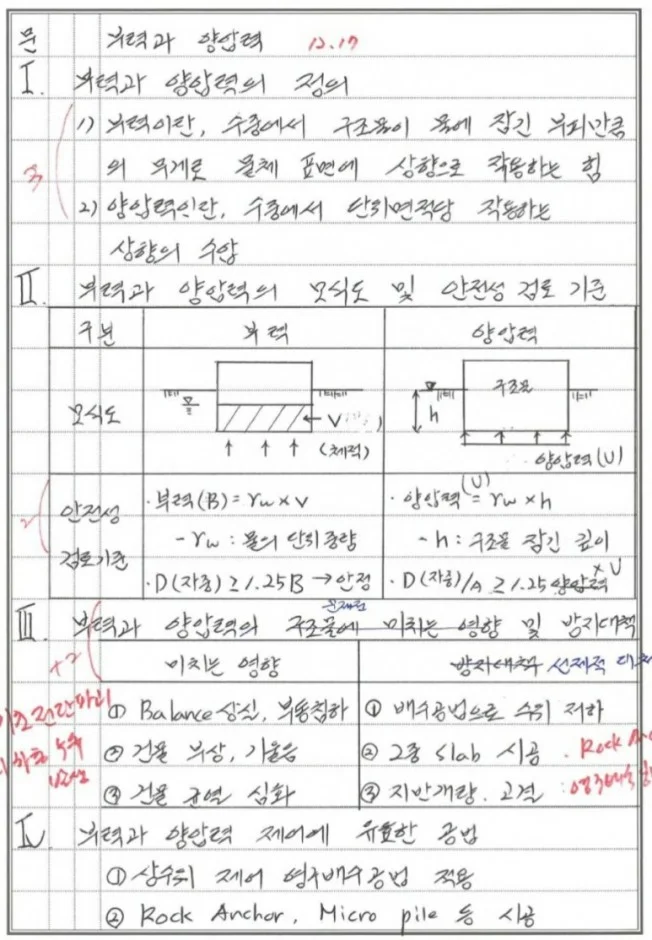 문 부력과 양압력 12.17
I. 부력과 양압력의 정의
1) 부력이란, 수중에서 구조물이 물에 잠긴 부피만큼
의 무게로 물체 표면에 상향으로 작용하는 힘
3
2) 양압력인란, 수중에서 단위면적당 작용하는
상향의 수압
II. 부력과 양압력의 모식도 및 안전성 검토 기준
구분 부력 양압력
모식도 V (체적) h 구조물 양압력(U)
안전성 검토기준
·부력(B) = rw × V
- rw : 물의 단위중량
·D(자중) ≥ 1.25B →안정
·양압력(U) = rw × h
- h : 구조물 잠긴 깊이
·D(자중)/A ≥ 1.25 양압력 × U
2
III. 부력과 양압력의 구조물에 미치는 영향 및 방지대책
문제점
+2
미치는 영향 방지대책 선제적
① Balance 상실, 부동침하 ① 배수공법으로 수위 저하
전단파괴
② 건물 부상, 기울음 ② 2중 slab 시공 . Rock
지하층 누수
③ 건물 균열 심화 ③ 지반개량. 고결 : 영구배수
IV. 부력과 양압력 제어에 유효한 공법
① 상수위 제어 영구배수공법 적용
② Rock Anchor, Micro pile 등 시공